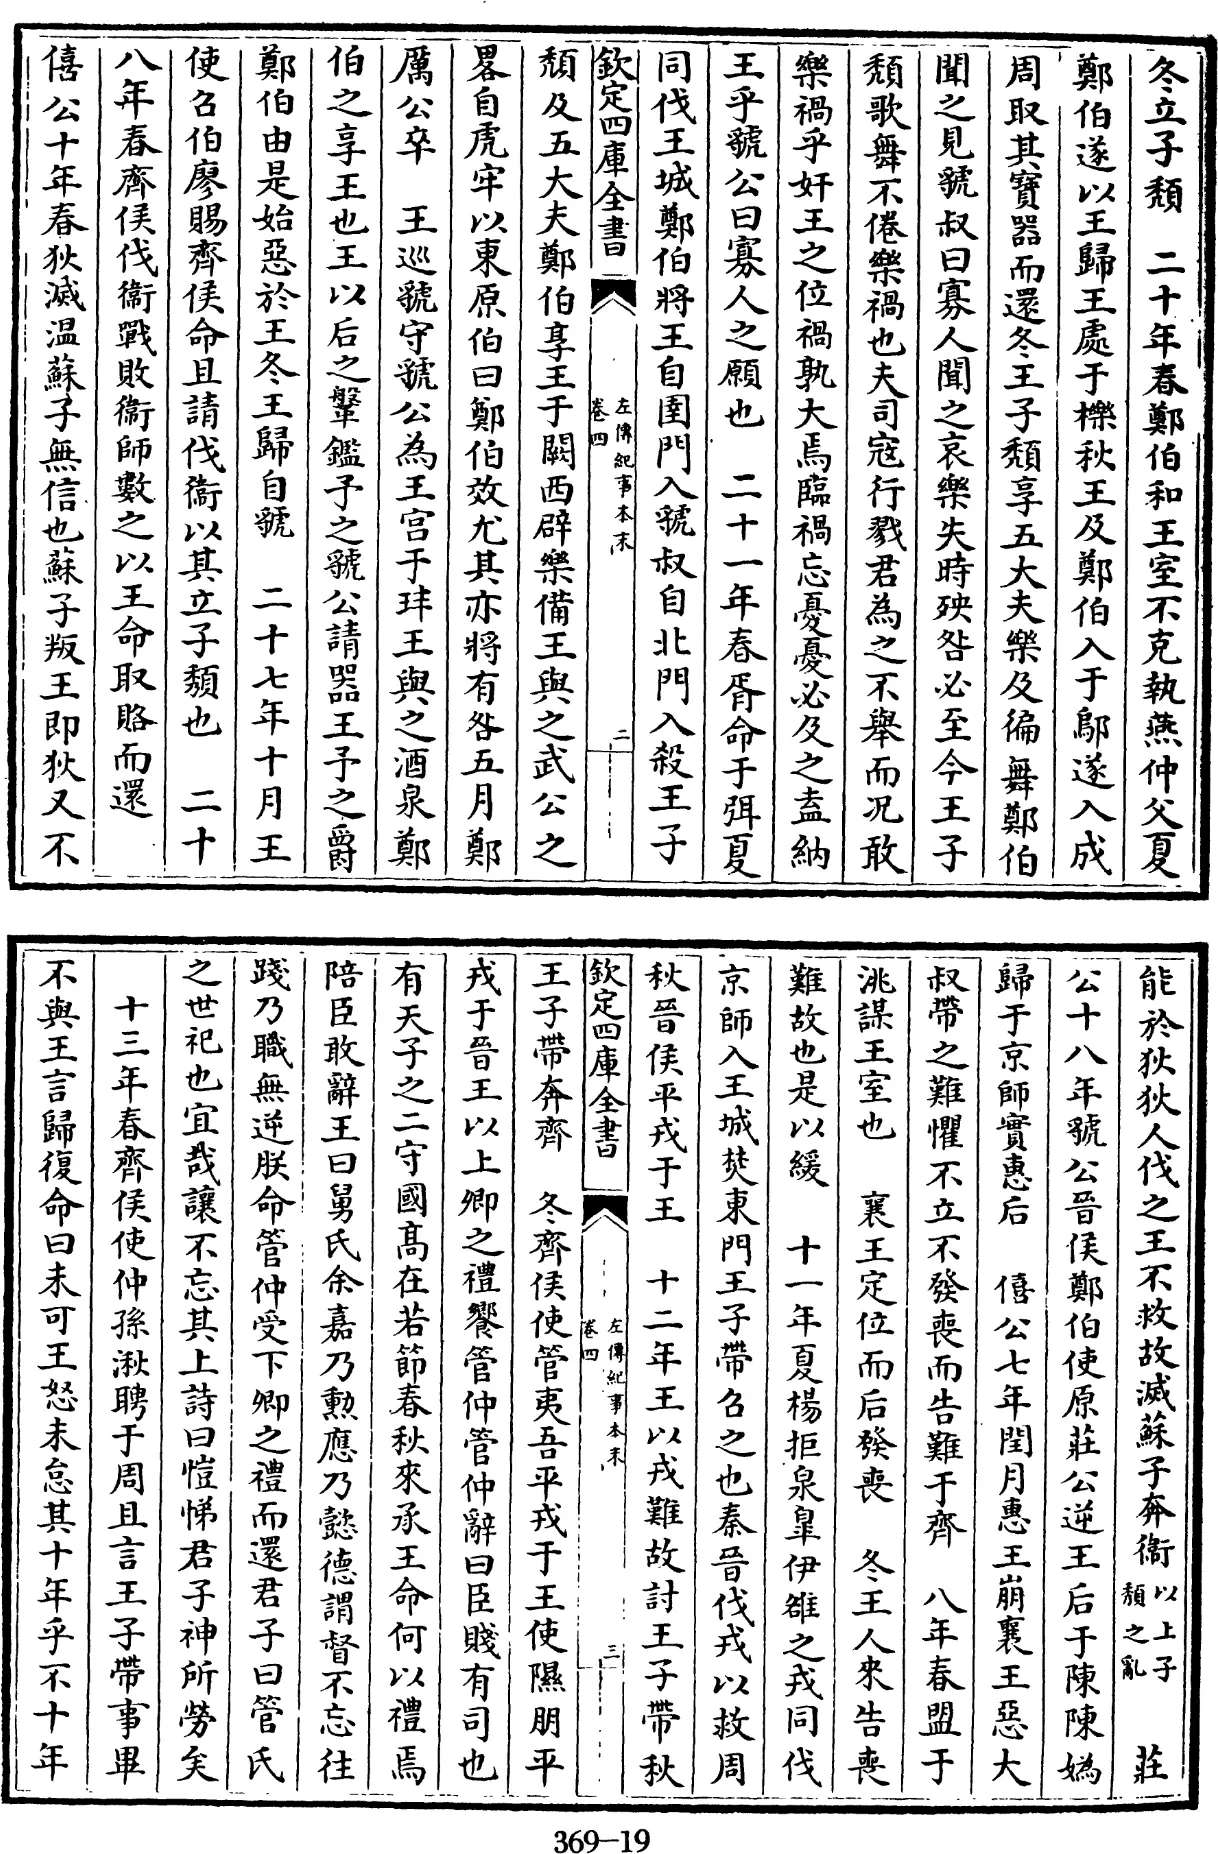 冬立子頽　二十年春鄭伯和王室不克執燕仲父夏
鄭伯遂以王歸王處于櫟秋王及鄭伯入于鄔遂入成
周取其寳器而還冬王子頽享五大夫樂及徧舞鄭伯
聞之見虢叔曰寡人聞之哀樂失時殃咎必至今王子
頽歌舞不倦樂禍也夫司寇行戮君為之不舉而况敢
樂禍乎奸王之位禍孰大焉臨禍忘憂憂必及之盍納
王乎虢公曰寡人之願也　二十一年春胥命于弭夏
同伐王城鄭伯將王自圉門入虢叔自北門入殺王子
欽定四庫全書
左傳紀事本末
卷四
二
頽及五大夫鄭伯享王于闕西辟樂備王與之武公之
畧自虎牢以東原伯曰鄭伯效尤其亦將有咎五月鄭
厲公卒　王巡虢守虢公為王宫于玤王與之酒泉鄭
伯之享王也王以后之鞶鑑予之虢公請器王予之爵
鄭伯由是始惡於王冬王歸自虢　二十七年十月王
使召伯廖賜齊侯命且請伐衞以其立子頽也　二十
八年春齊侯伐衞戰敗衞師數之以王命取賂而還
僖公十年春狄滅温蘇子無信也蘇子叛王即狄又不
能於狄狄人伐之王不救故滅蘇子奔衞以上子頽之亂　莊
公十八年虢公晉侯鄭伯使原莊公逆王后于陳陳媯
歸于京師實惠后　僖公七年閏月惠王崩襄王惡大
叔帶之難懼不立不發喪而告難于齊　八年春盟于
洮謀王室也　襄王定位而后發喪　冬王人來告喪
難故也是以緩　十一年夏楊拒泉臯伊雒之戎同伐
京師入王城焚東門王子帶召之也秦晉伐戎以救周
秋晉侯平戎于王　十二年王以戎難故討王子帶秋
欽定四庫全書
左傳紀事本末
卷四
三
王子帶奔齊　冬齊侯使管夷吾平戎于王使隰朋平
戎于晉王以上卿之禮饗管仲管仲辭曰臣賤有司也
有天子之二守國髙在若節春秋來承王命何以禮焉
陪臣敢辭王曰舅氏余嘉乃勲應乃懿德謂督不忘往
踐乃職無逆朕命管仲受下卿之禮而還君子曰管氏
之世祀也宜哉讓不忘其上詩曰愷悌君子神所勞矣
十三年春齊侯使仲孫湫聘于周且言王子帶事畢
不與王言歸復命曰未可王怒未怠其十年乎不十年
369—19